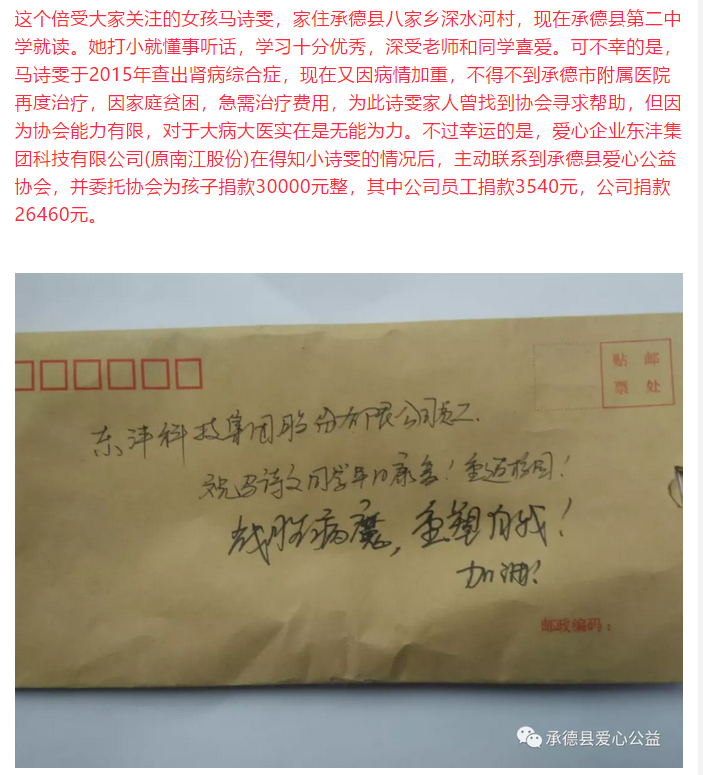 这个倍受大家关注的女孩马诗雯，家住承德县八家乡深水河村，现在承德县第二中
学就读。她打小就懂事听话，学习十分优秀，深受老师和同学喜爱。可不幸的是，
马诗雯于2015年查出肾病综合症，现在又因病情加重，不得不到承德市附属医院
再度治疗，因家庭贫困，急需治疗费用，为此诗雯家人曾找到协会寻求帮助，但因
为协会能力有限，对于大病大医实在是无能为力。不过幸运的是，爱心企业东沣集
团科技有限公司(原南江股份)在得知小诗雯的情况后，主动联系到承德县爱心公益
协会，并委托协会为孩子捐款30000元整，其中公司员工捐款3540元，公司捐款
26460元。
贴 邮
票 处
东沣科技集团股份有限公司员工.
祝马诗文同学早日康复！重返校园！
战胜病魔，重塑自我！
加油！
邮政编码：
承德县爱心公益